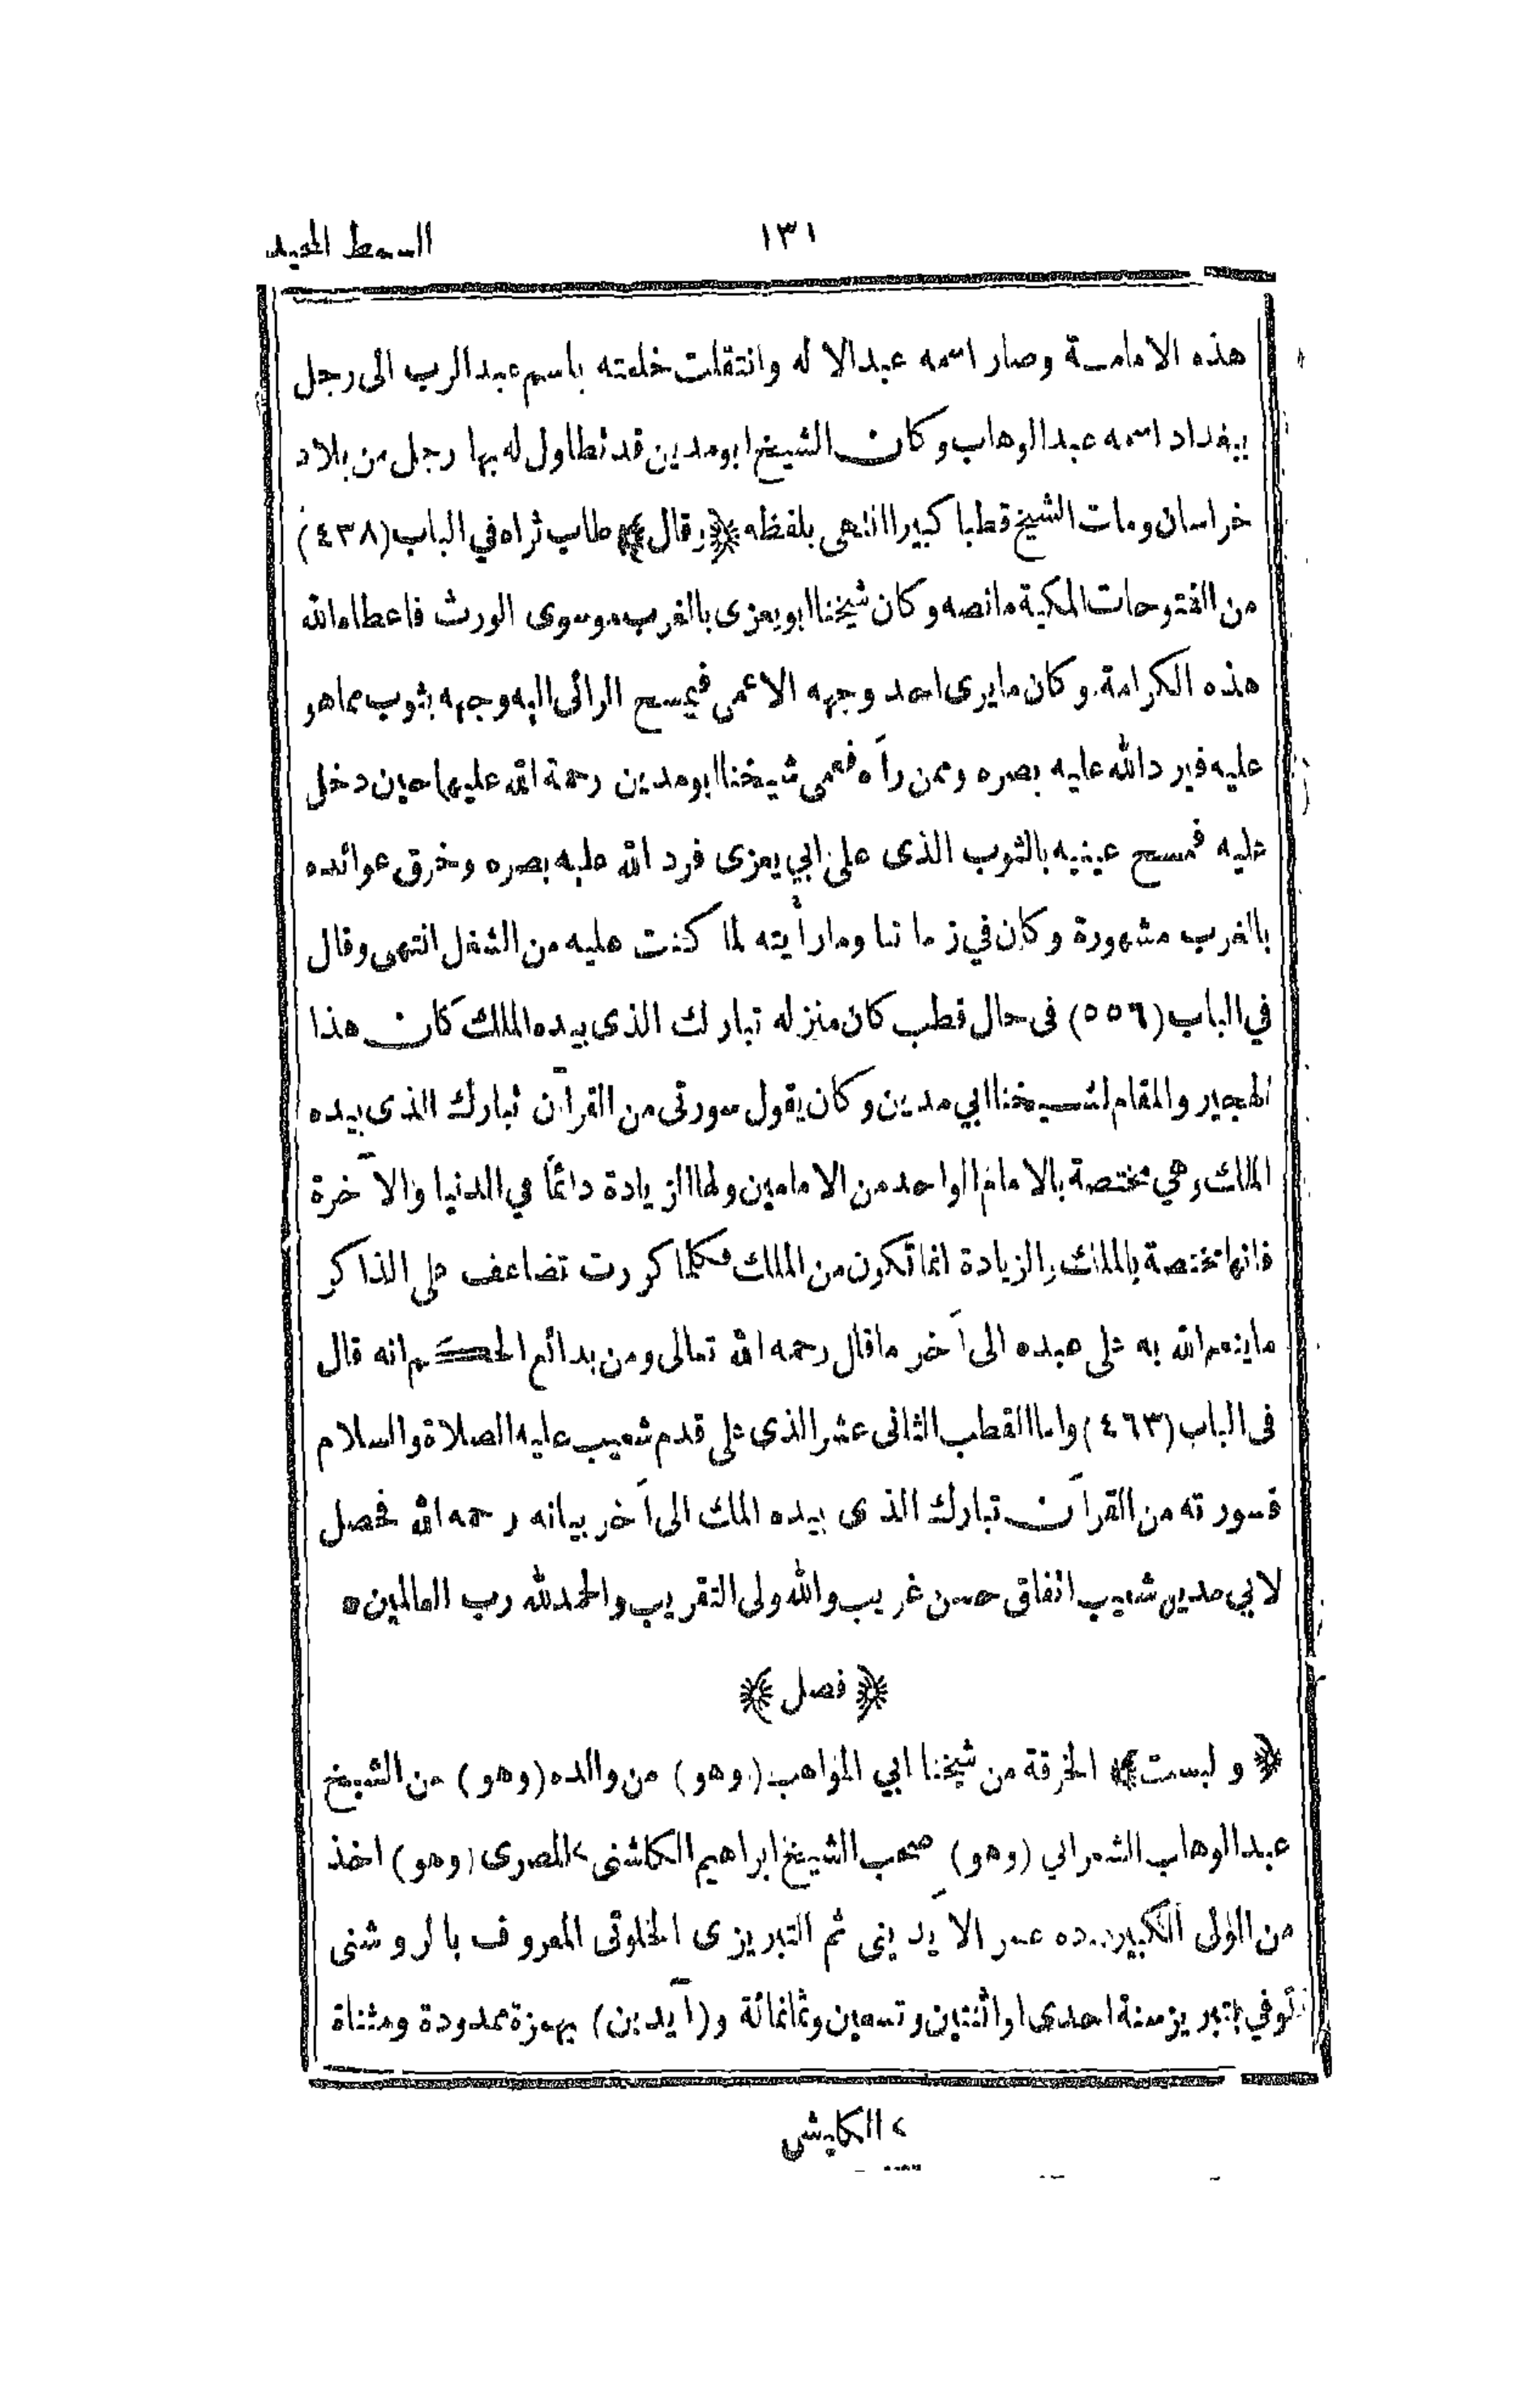 ١٣١ السمط المجيد
هذه الامامية وصار اسمه عبدالاله وانتقلت خلعته باسم عبدالرب الى رجل
ببغداد اسمه عبدالوهاب وكان الشيخ ابومدين قد تطاول له بها رجل من بلاد
خراسان ومات الشيخ قطبا كبيرا انتهى بلفظه ﴿وقال﴾ طاب ثراه في الباب (٤٣٨)
من الفتوحات المكية ما نصه وكان شيخنا ابويعزى بالغرب موسوى الورث فاعطاه الله
هذه الكرامة وكان ما يرى احد وجهه الاعمى فيمسح الرائى اليه وجهه بثوب مما هو
عليه فيرد الله عليه بصره وممن رآه فعمى شيخنا ابومدين رحمة الله عليهما حين دخل
عليه فمسح عينيه بالثوب الذى على ابي يعزى فرد الله عليه بصره وخرق عوائده
بالغرب مشهورة وكان في زماننا وما رأيته لما كنت عليه من الشغل انتهى وقال
في الباب (٥٥٦) فى حال قطب كان منزله تبارك الذى بيده الملك كان هذا
الهجير والمقام لشيخنا ابي مدين وكان يقول سورتى من القرآن تبارك الذى بيده
الملك وهي مختصة بالامام الواحد من الامامين ولها الزيادة دائمًا في الدنيا والآخرة
فانها مختصة بالملك والزيادة انما تكون من الملك فكلما كررت تضاعف على الذاكر
ما ينعم الله به على عبده الى آخر ما قال رحمه الله تعالى ومن بدائع الحكم انه قال
فى الباب (٤٦٣) واما القطب الثانى عشر الذى على قدم شعيب عليه الصلاة والسلام
فسورته من القرآن تبارك الذى بيده الملك الى آخر بيانه رحمه الله فحصل
لابي مدين شعيب اتفاق حسن غريب والله ولى التقريب والحمد لله رب العالمين ٥
﴿ فصل ﴾
﴿ ولبست ﴾ الخرقة من شيخنا ابي المواهب (وهو) من والده (وهو) من الشيخ
عبدالوهاب الشعراني (وهو) صحب الشيخ ابراهيم الكاشنى > المصرى (وهو) اخذ
من المولى الكبير دده عمر الآيدينى ثم التبريزى الخلوتى المعروف بالروشنى
توفي بتبريز سنة احدى او اثنتين وتسعين وثمانمائة و(آيدين) بهمزة ممدودة ومثناة
> الكابشى